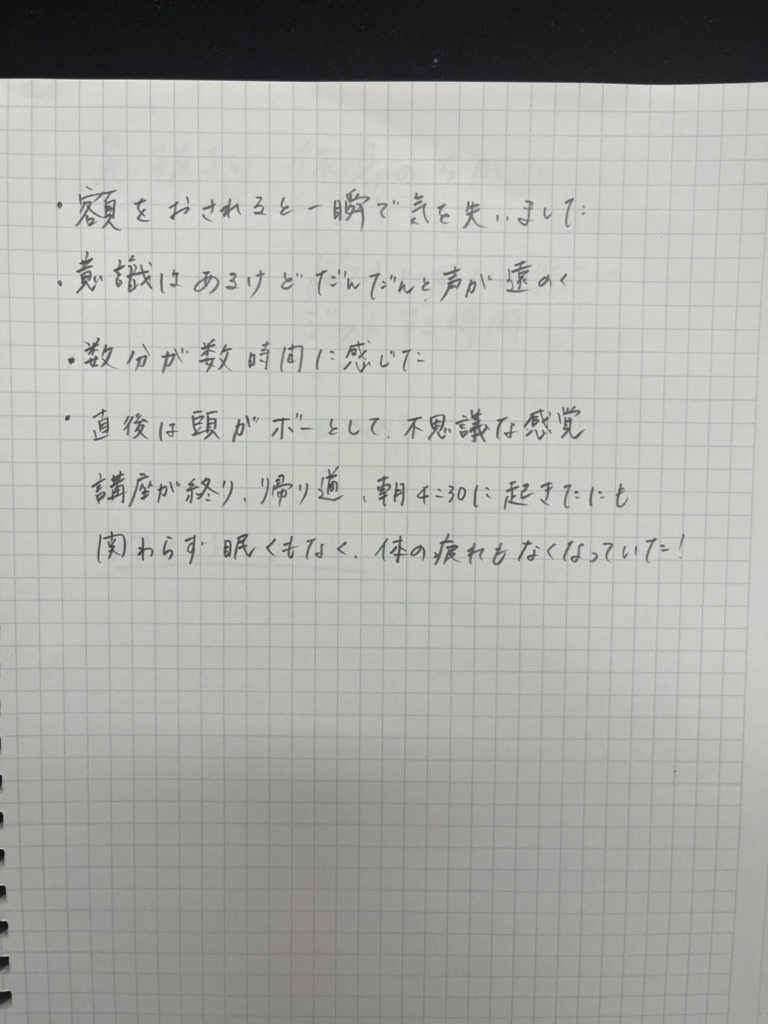 ・額をおされると一瞬で気を失いました
・意識はあるけどだんだんと声が遠のく
・数分が数時間に感じた
・直後は頭がボーとして、不思議な感覚
講座が終り、帰り道、朝4:30に起きたにも
関わらず眠くもなく、体の疲れもなくなっていた!